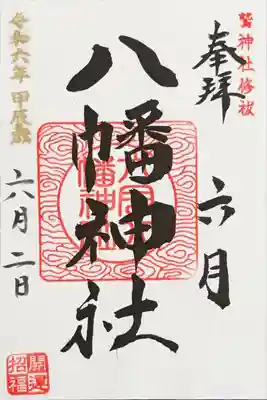 鷲神社修祓
奉拝
六月
八幡神社
令和六年 甲辰歳
六月二日
開運
招福